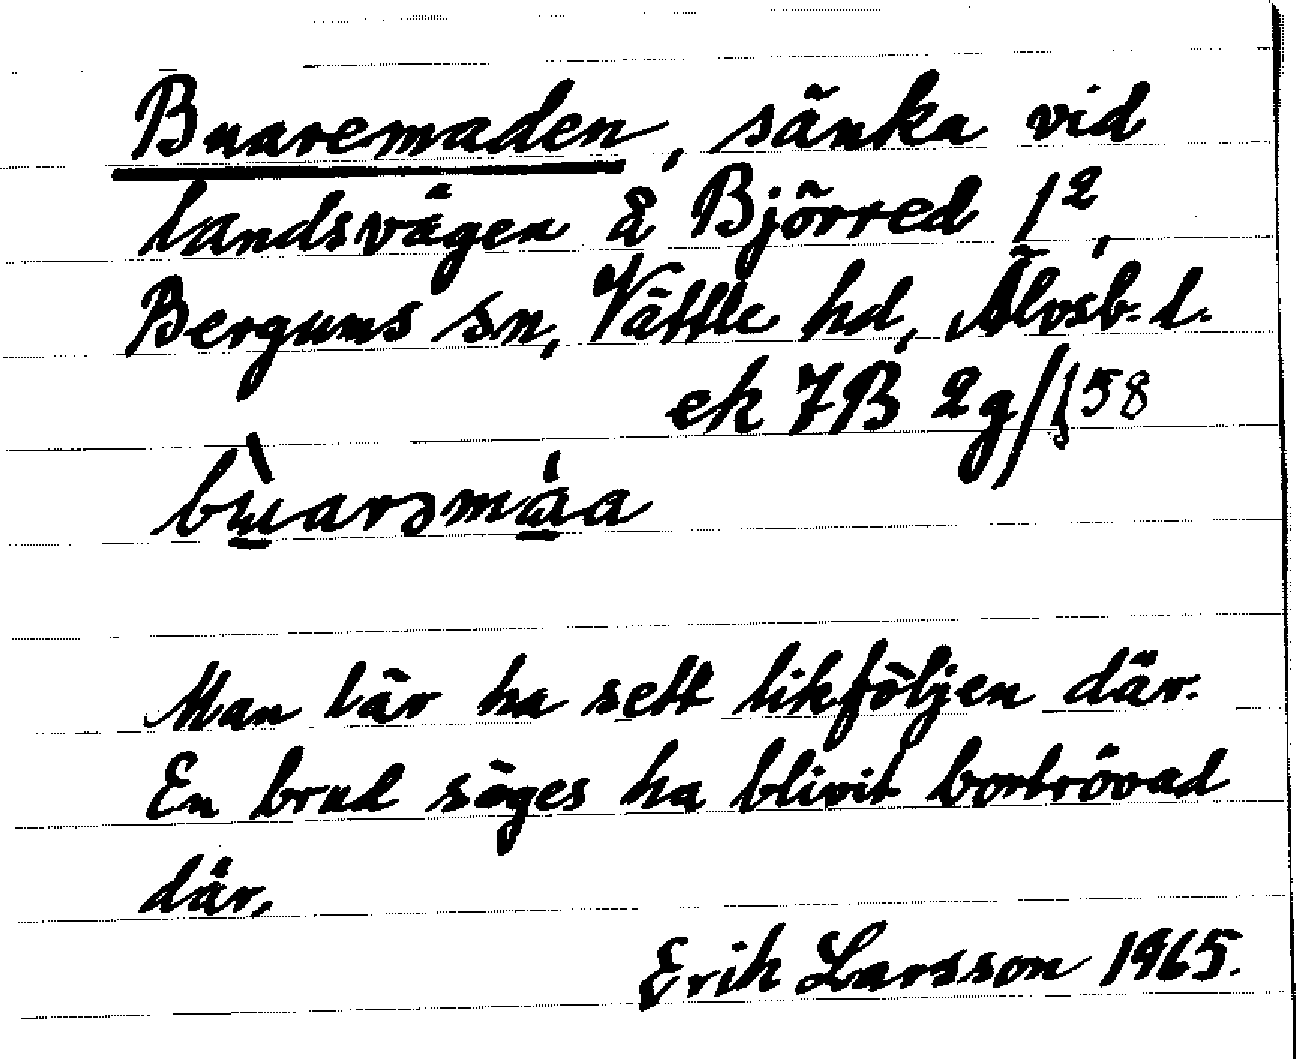 Buaremaden, sänka vid
landsvägen å Björred 1²,
Bergums sn, Vättle hd, Älvsb. l.
ek 7B 2g/f 58
bùarəmáa
Man lär ha sett likföljen där.
En brud säges ha blivit bortrövad
där.
Erik Larsson 1965.